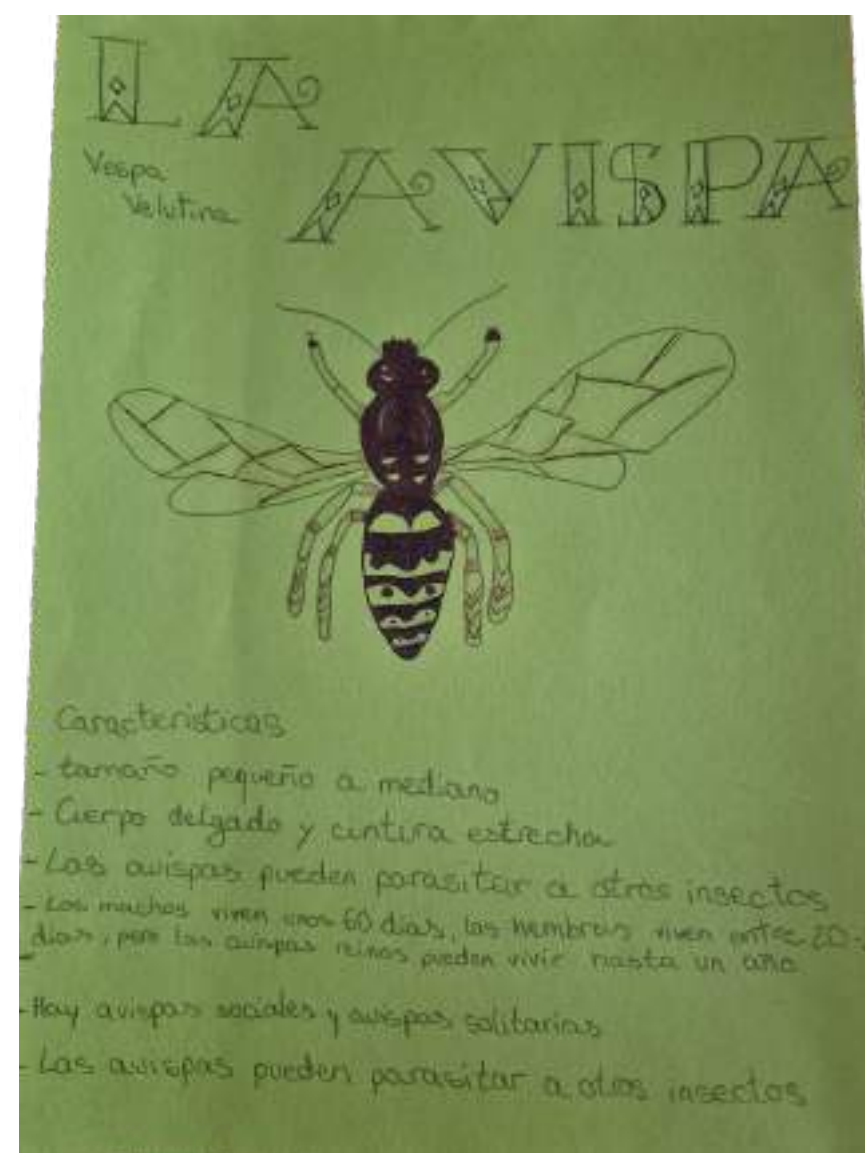 LA
AVISPA
Vespa
Velutina
Características
- tamaño pequeño a mediano
- Cuerpo delgado y cintura estrecha
- Las avispas pueden parasitar a otros insectos
- Los machos viven unos 60 días, las hembras viven entre 20
días, pero las avispas reinas pueden vivir hasta un año
-
- Hay avispas sociales y avispas solitarias
- Las avispas pueden parasitar a otros insectos